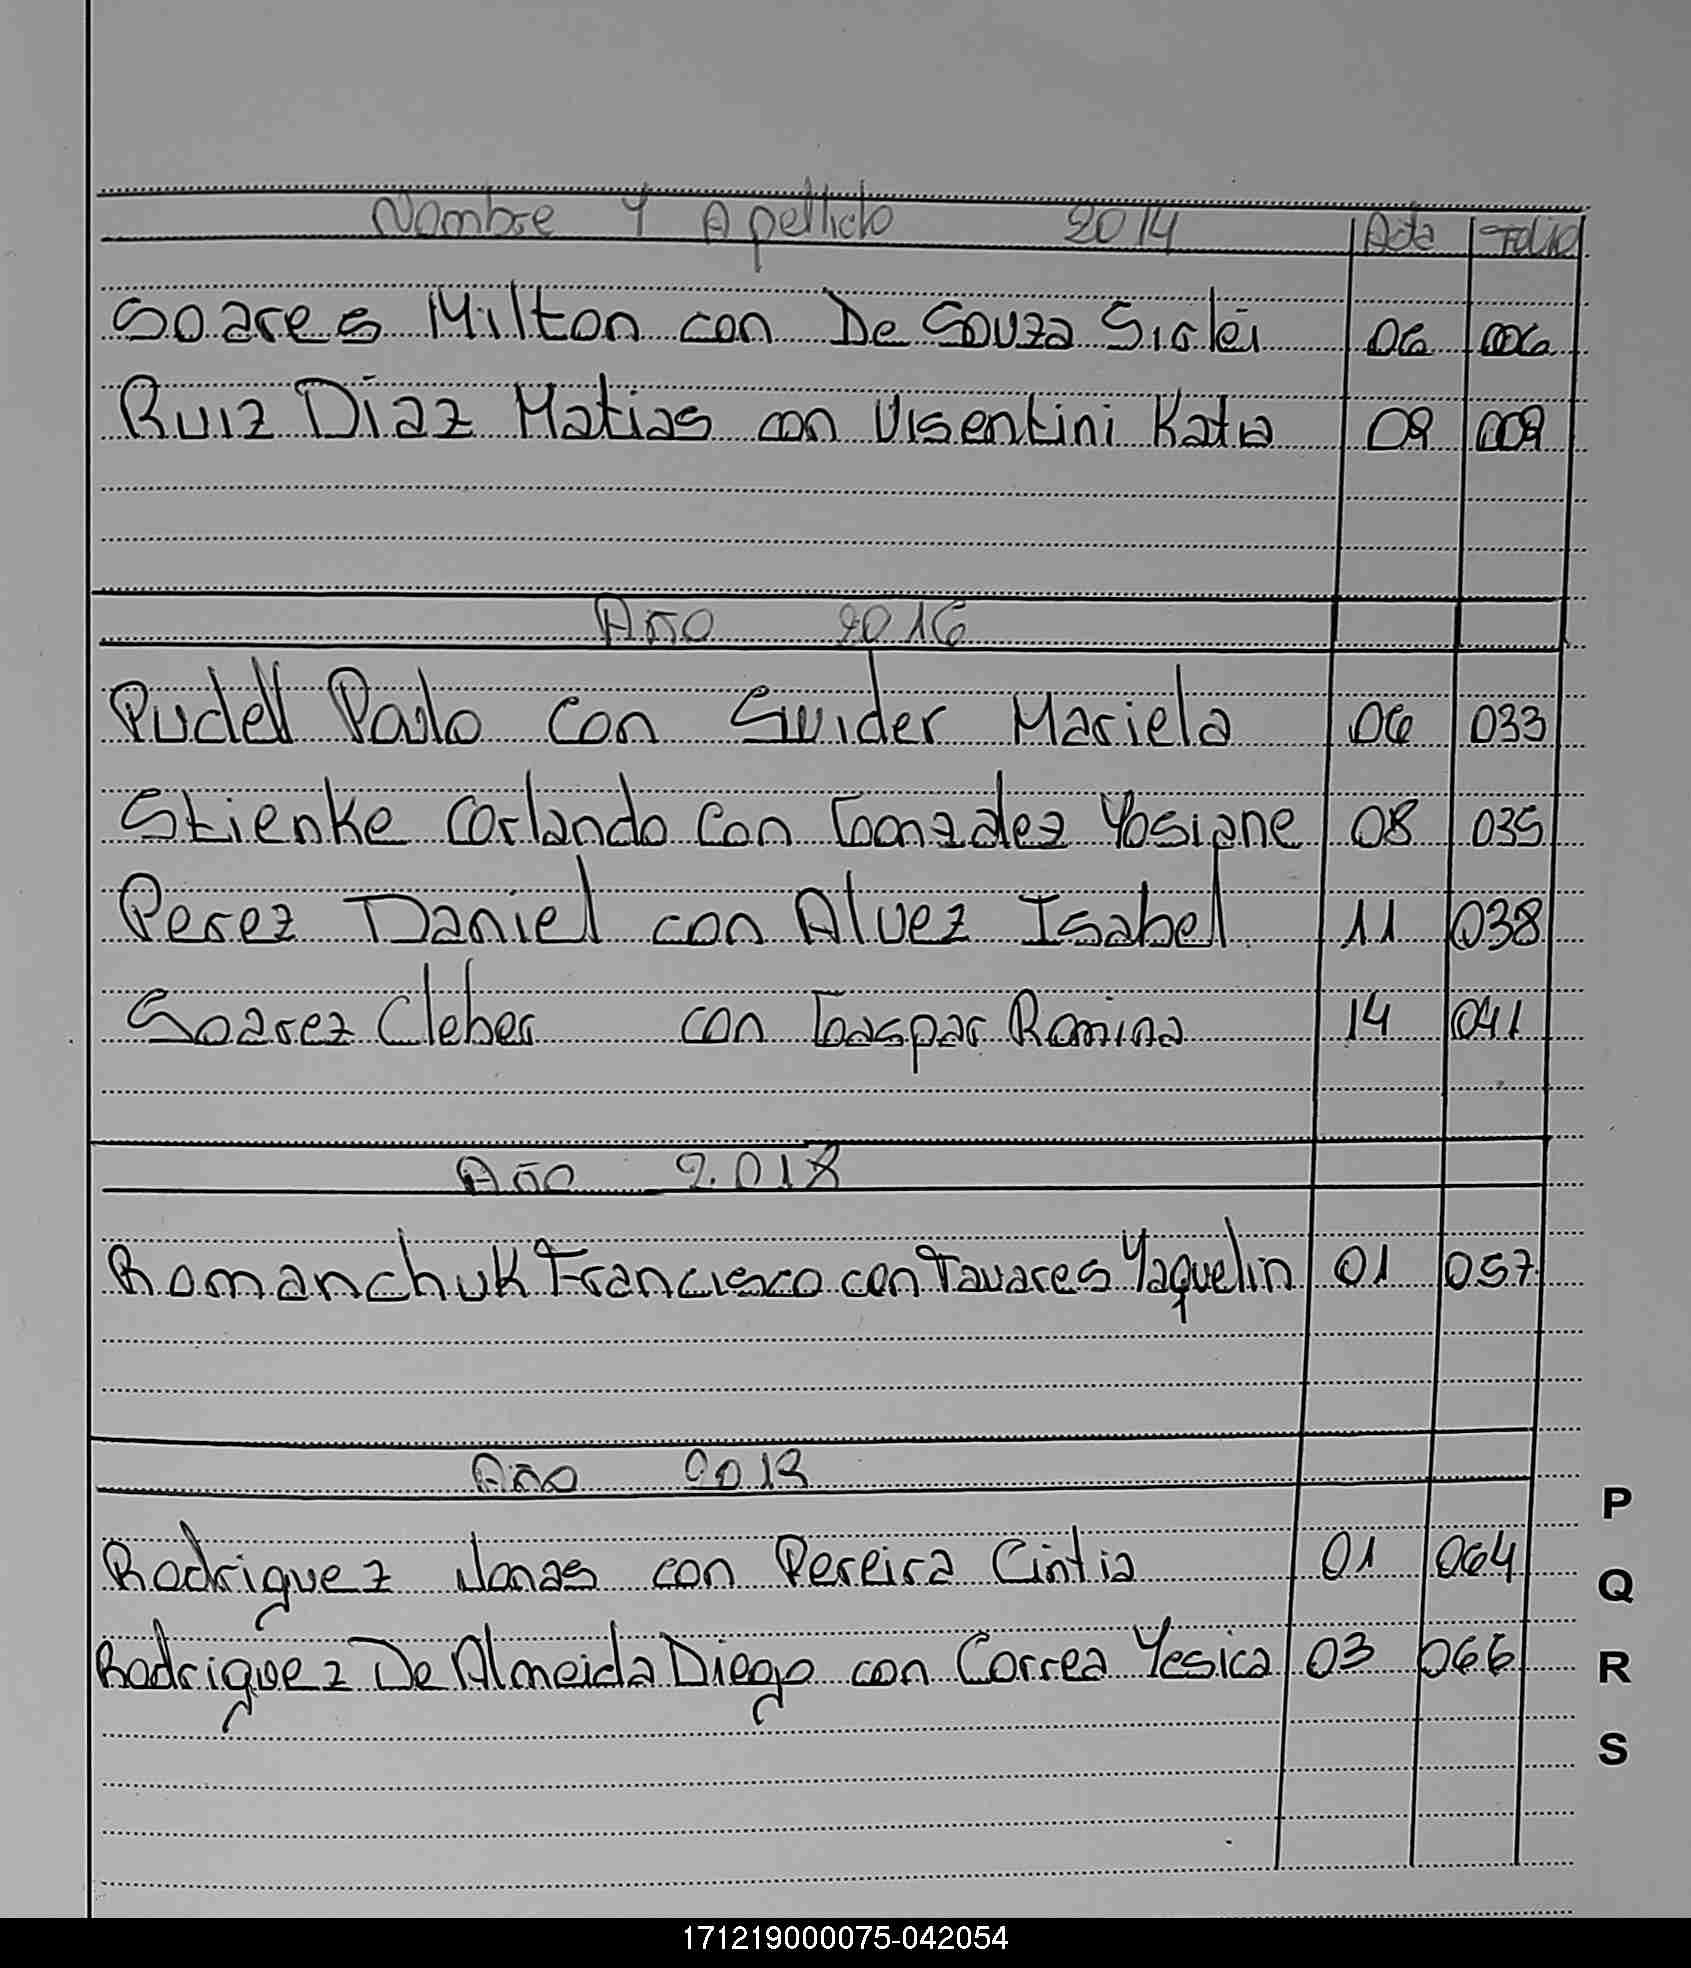 Nombre Y Apellido 2014 Acta Folio
Soares Milton con De Souza Sirlei 06 006
Ruiz Diaz Matias con Visentini Katia 09 009
Año 2016
Pudell Paulo con Swider Mariela 06 033
Stienke Orlando Con Gonzalez Yosiane 08 035
Perez Daniel con Alvez Isabel 11 038
Soarez Cleber con Gaspar Romina 14 041
Año 2.018
Romanchuk Francisco con Tavares Yaquelin 01 057
Año 2019
Rodriguez Jonas con Pereira Cintia 01 064
Rodriguez De Almeida Diego con Correa Yesica 03 066
P
Q
R
S
171219000075-042054